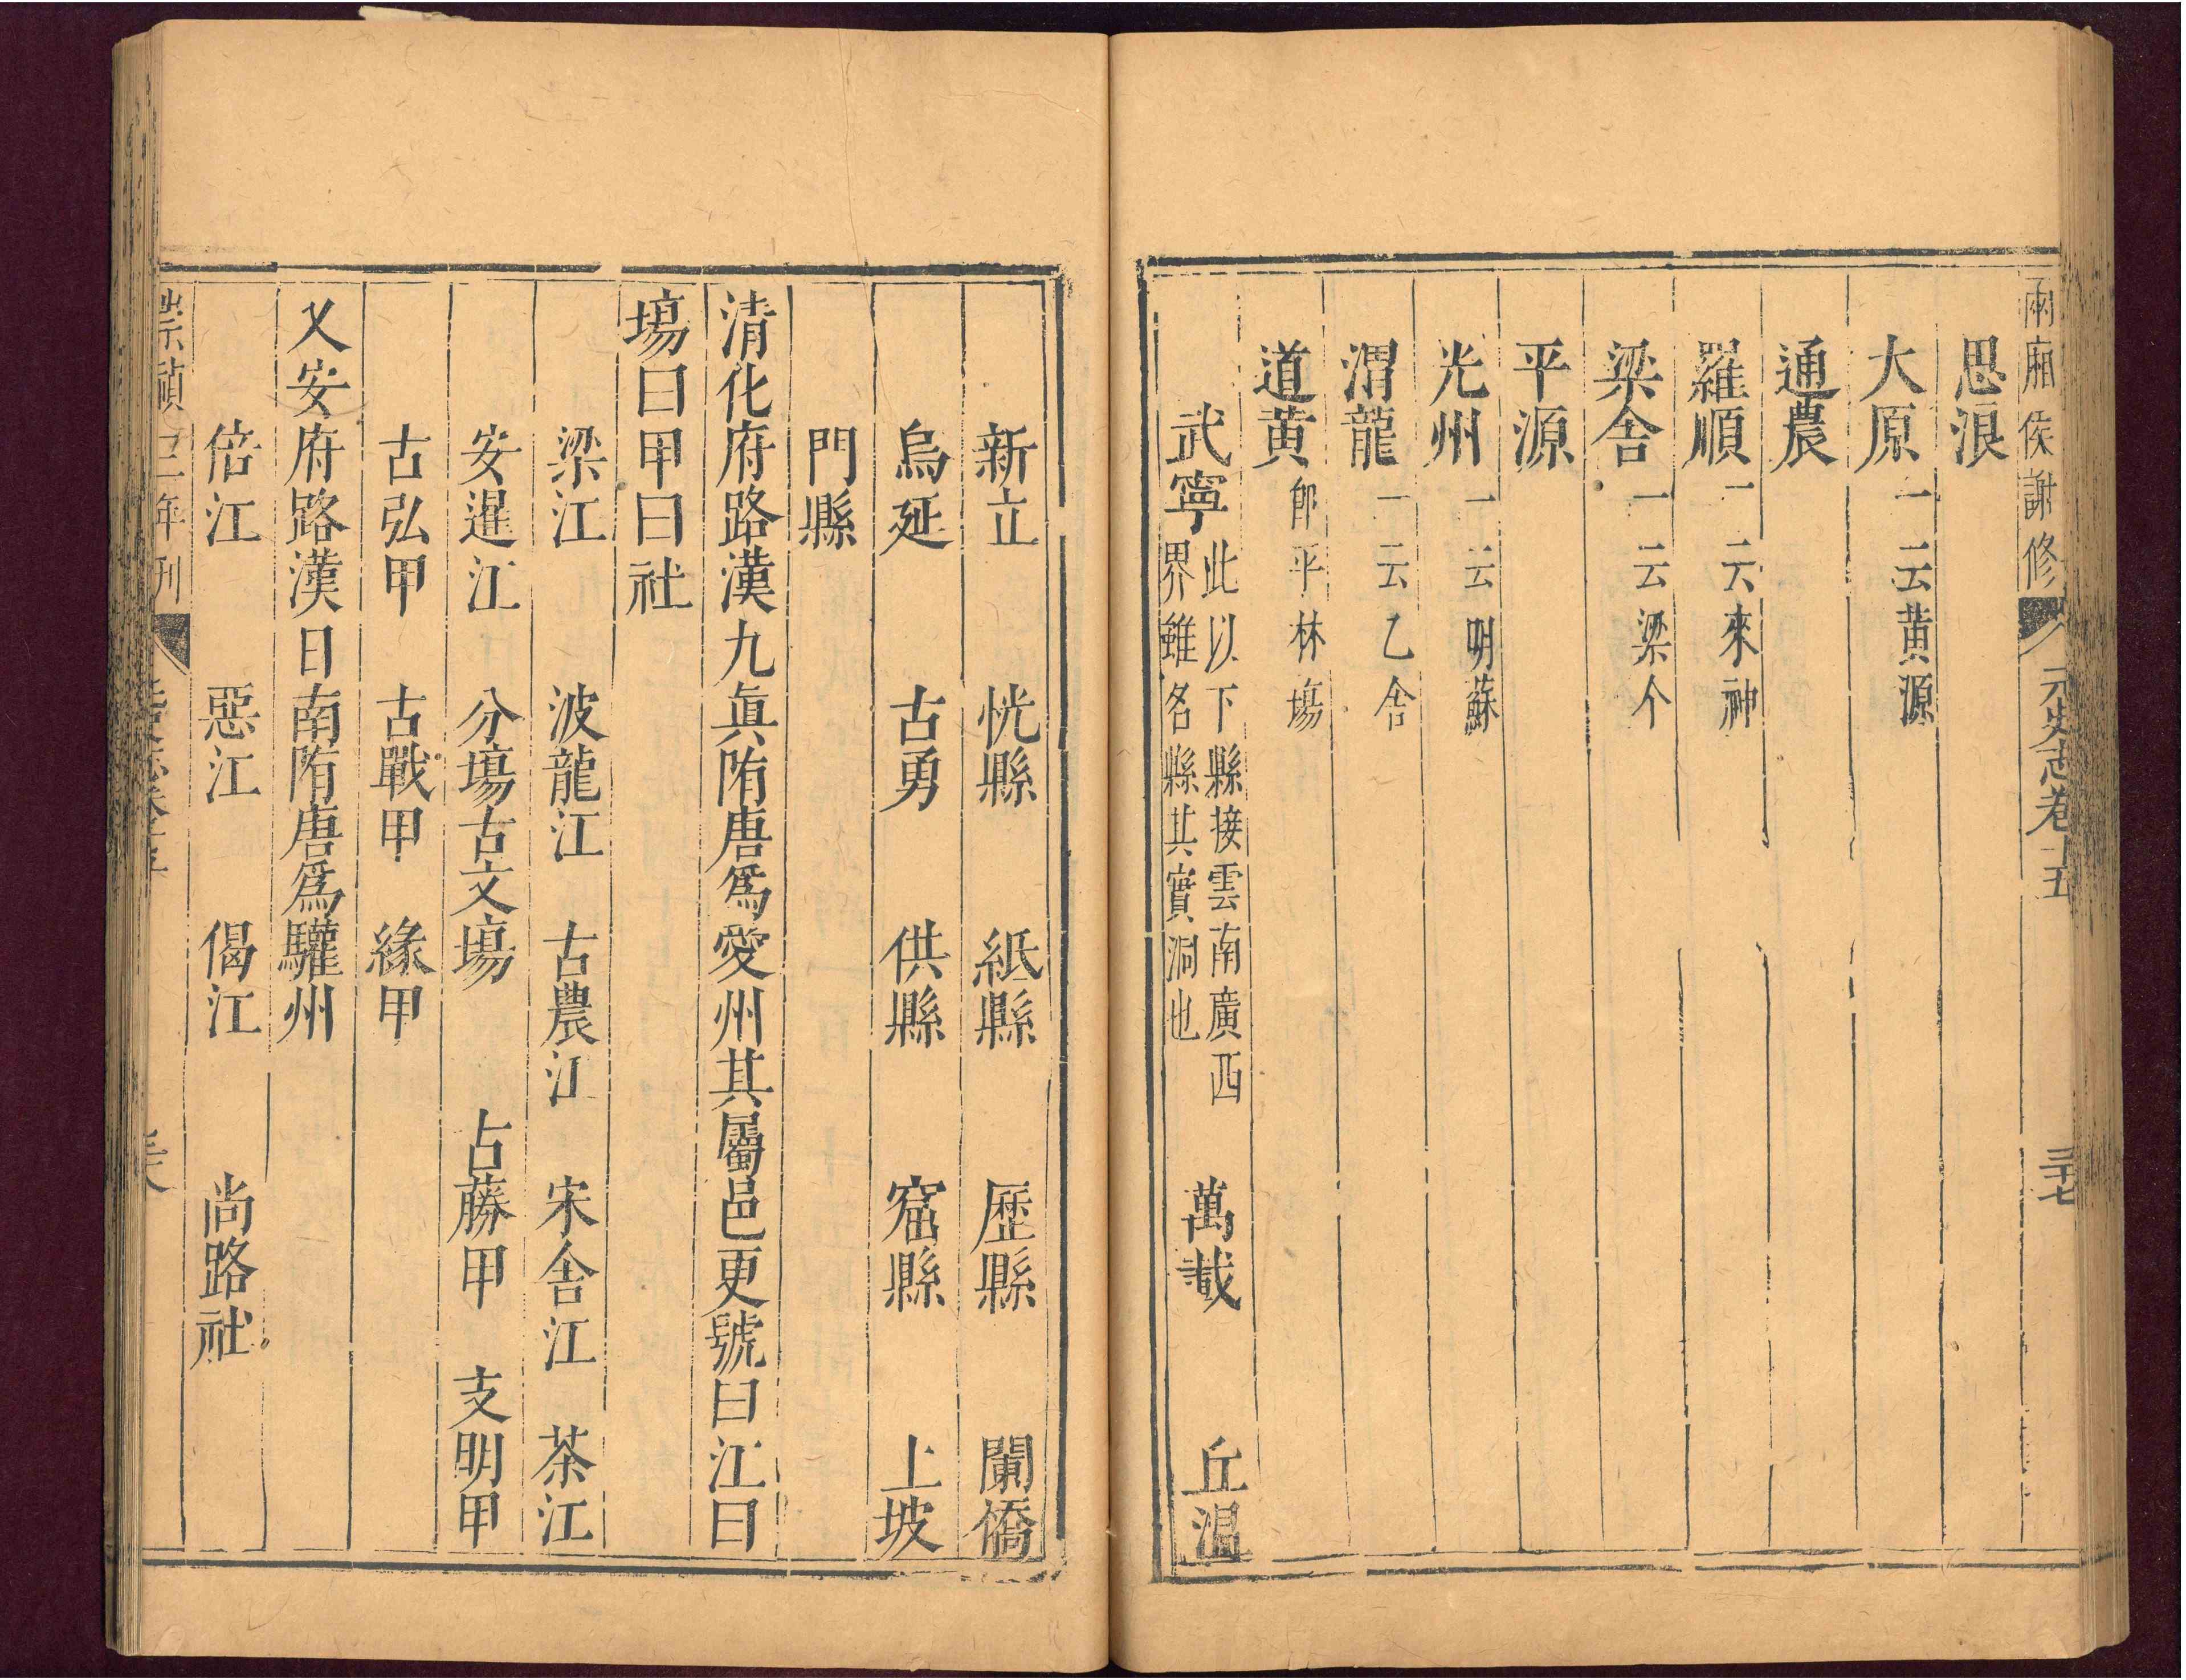 兩廂侯謝修 元史志卷十五 三十七
思浪
大原一云黃源
通農
羅順一云來神
梁舍一云梁个
平源
光州一云明蘇
渭龍一云乙舍
道黃即平林場
武寧此以下縣接雲南廣西界雖名縣其實洞也 萬載 丘溫
新立 恍縣 紙縣 歷縣 闌橋
烏延 古勇 供縣 窟縣 上坡
門縣
清化府路漢九眞隋唐爲愛州其屬邑更號曰江曰
場曰甲曰社
梁江 波龍江 古農江 宋舍江 茶江
安暹江 分場古文場 占藤甲 支明甲
古弘甲 古戰甲 緣甲
乂安府路漢日南隋唐爲驩州
倍江 惡江 偈江 尚路社
崇禎三年刊